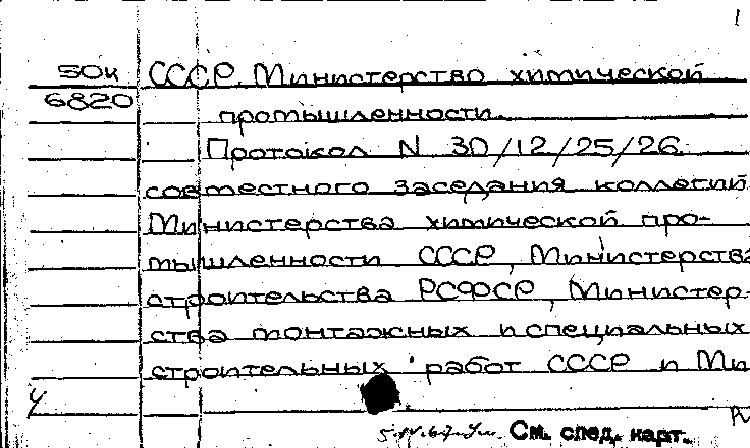 1
50к СССР. Министерство химической
6820 промышленности.
Протокол N 30/12/25/26
совместного заседания коллегий
Министерства химической про-
мышленности СССР, Министерства
строительства РСФСР, Министер-
ства монтажных и специальных
строительных работ СССР и Ми
См. след. карт.